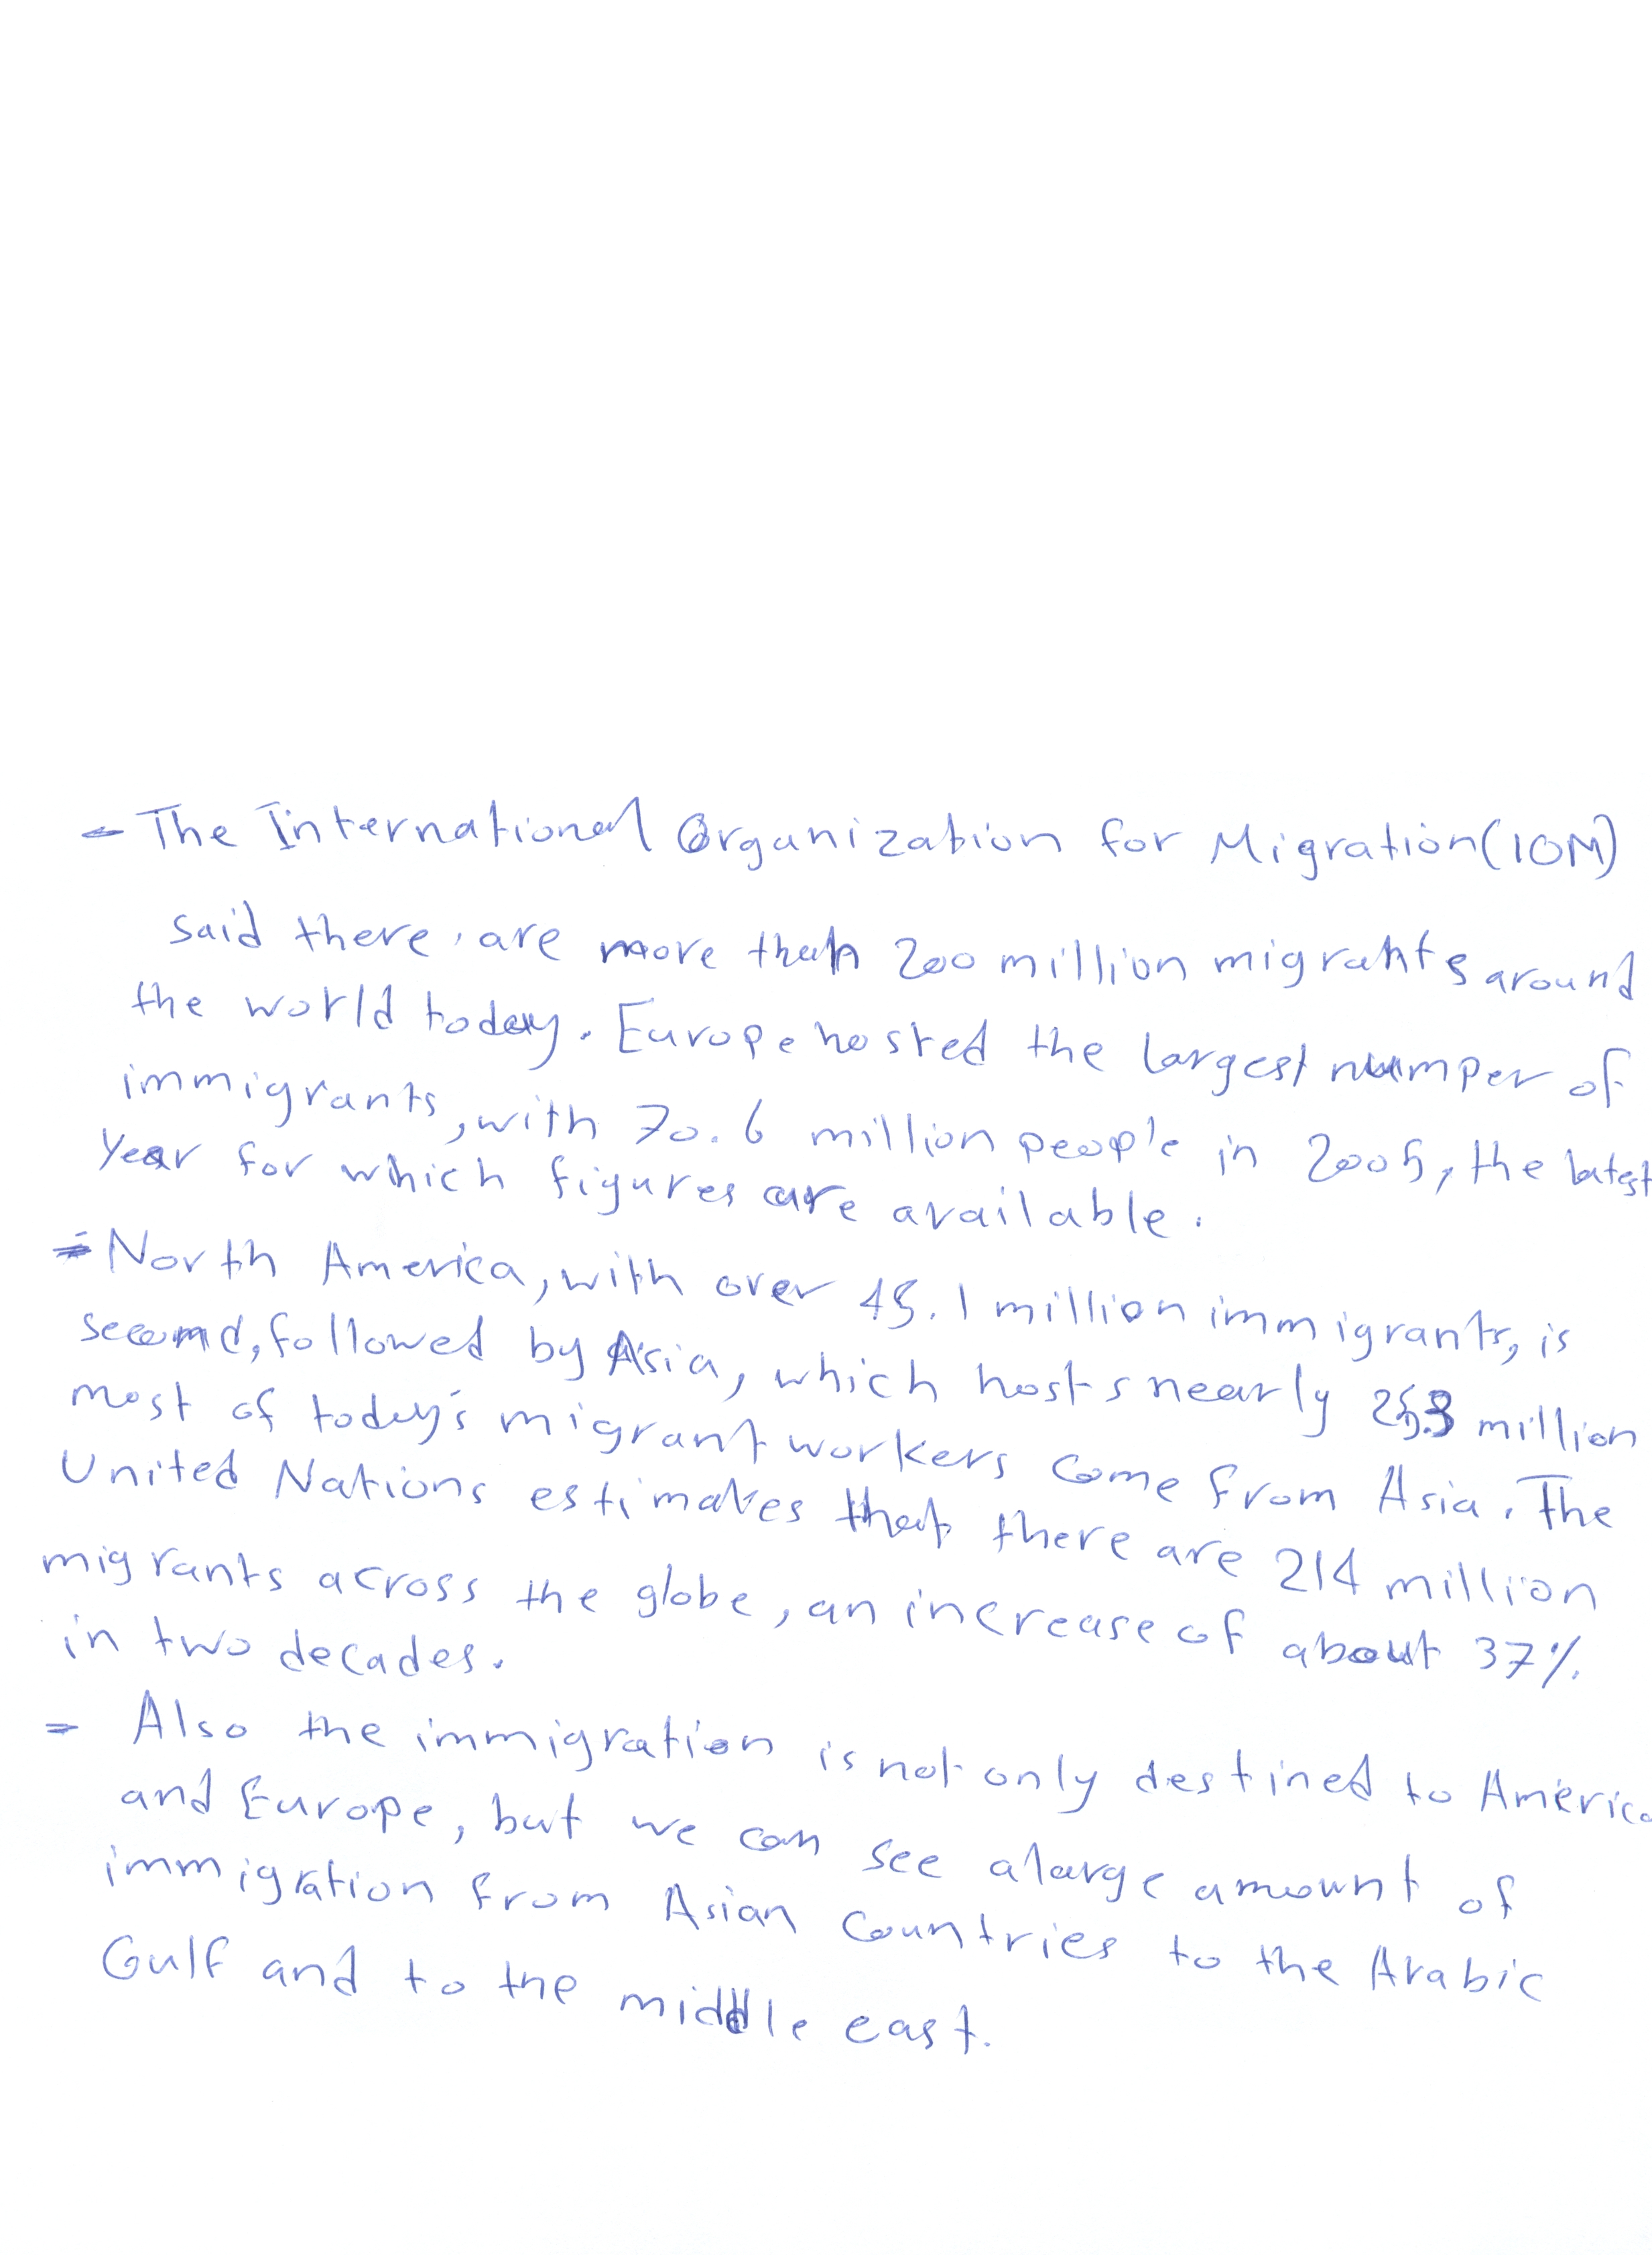 - The International Organization for Migration (IOM)
said there are more than 200 million migrants around
the world today. Europe hosted the largest numper of
immigrants, with 70.6 million people in 2005, the latest
year for which figures are available.
- North America, with over 45.1 million immigrants, is
second, followed by Asia, which hosts nearly 25.3 million
most of today's migrant workers come from Asia. The
United Nations estimates that there are 214 million
migrants across the globe, an increase of about 37%
in two decades.
- Also the immigration is not only destined to America
and Europe, but we can see a large amount of
immigration from Asian countries to the Arabic
Gulf and to the middle east.